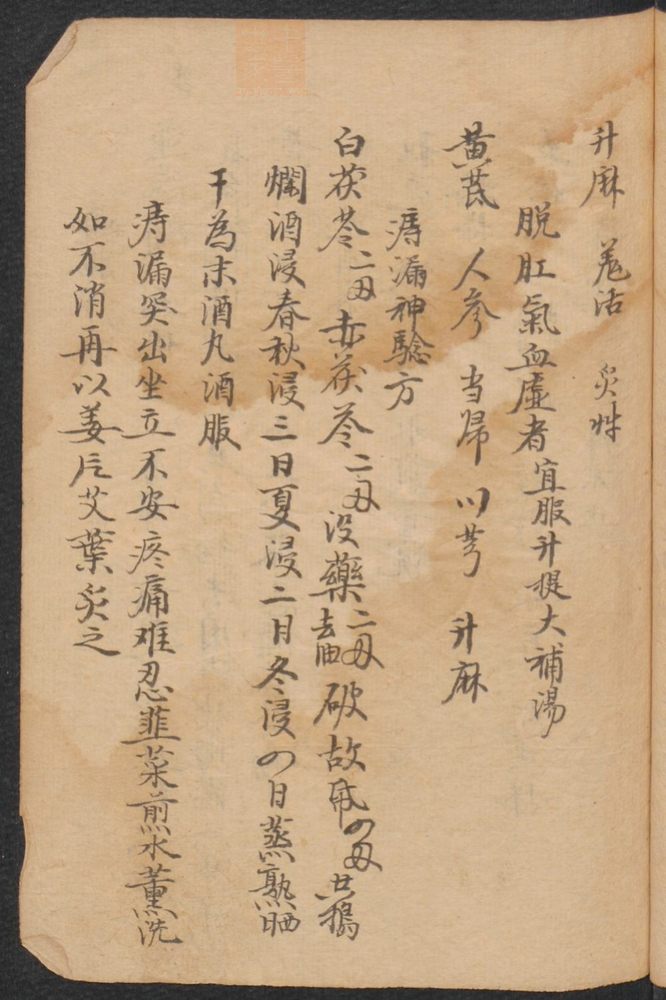 升麻 羗活 炙草
脱肛氣血虚者宜服升提大補湯
黄芪 人參 当歸 川芎 升麻
痔漏神驗方
白茯苓二両 赤茯苓二両 没藥二両去油 破故帋四両 共搗
爛酒浸春秋浸三日夏浸二日冬浸四日蒸熟晒
干為末酒丸酒服
痔漏突出坐立不安疼痛难忍韮菜煎水薰洗
如不消再以姜片艾葉炙之